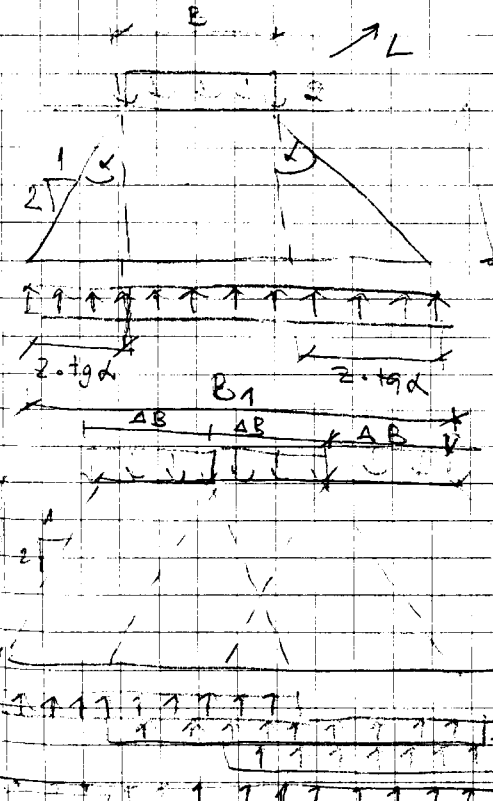 B
L
1
2
α
α
z·tgα
z·tgα
B1
ΔB ΔB ΔB
1
2